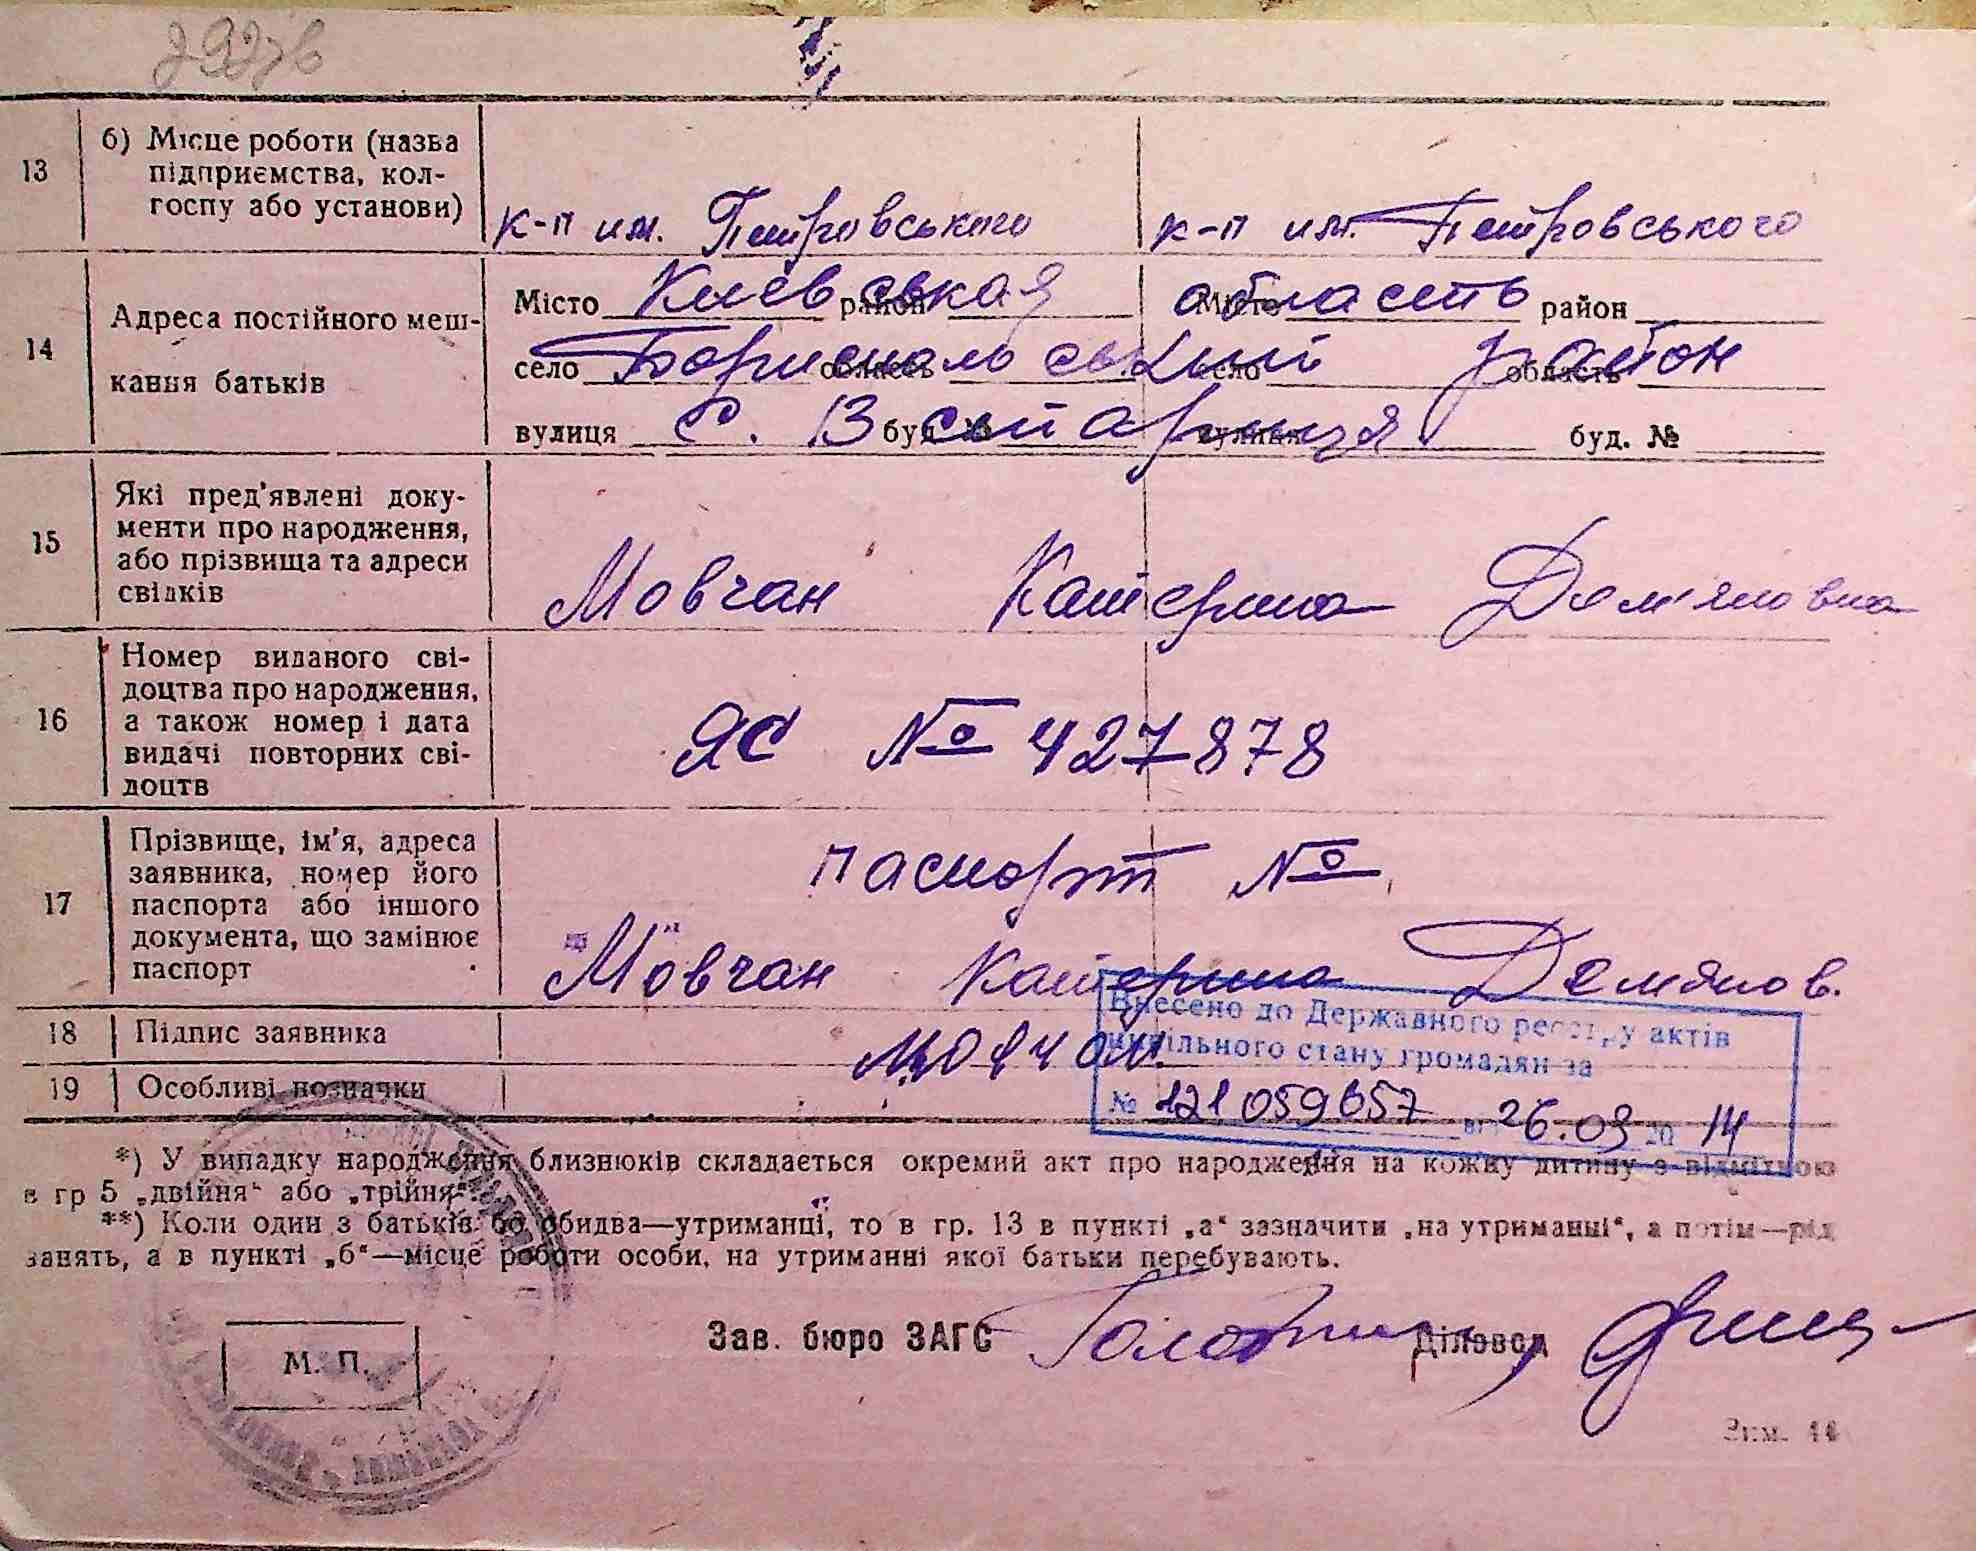 13
б) Місце роботи (назва
підприємства, кол-
госпу або установи)
к-п им. Петровського
к-п им. Петровського
14
Адреса постійного меш-
кання батьків
Місто Киевськая район область Місто район
село Бориспольський область село район область
вулиця с. В старица буд. № вулиця буд. №
15
Які пред'явлені доку-
менти про народження,
або прізвища та адреси
свідків
Мовчан Катерина Дем'яновна
16
Номер виданого сві-
доцтва про народження,
а також номер і дата
видачі повторних сві-
доцтв
ЯС № 427878
17
Прізвище, ім'я, адреса
заявника, номер його
паспорта або іншого
документа, що замінює
паспорт
паспорт №
Мовчан Катерина Демянов.
18
Підпис заявника
Мовчан.
19
Особливі позначки
Внесено до Державного реєстру актів
цивільного стану громадян за
№ 121059657 від 26.03 20 14
*) У випадку народження близнюків складається окремий акт про народження на кожну дитину з відміткою
в гр 5 „двійня“ або „трійня“.
**) Коли один з батьків, бо обидва—утриманці, то в гр. 13 в пункті „а“ зазначити „на утриманні“, а потім—рід
занять, а в пункті „б“—місце роботи особи, на утриманні якої батьки перебувають.
Зав. бюро ЗАГС
Діловод
М. П.